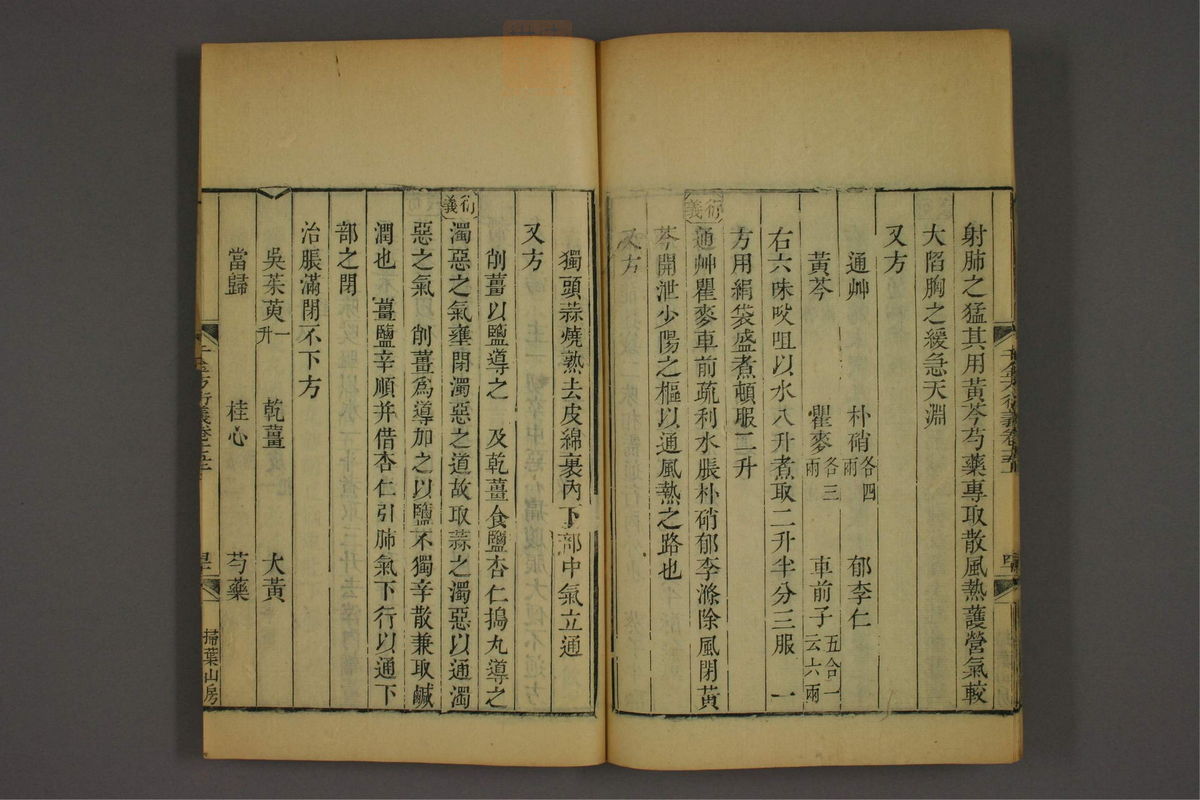 射肺之猛其用黃芩芍藥專取散風熱護營氣較
大陷胸之緩急天淵
又方
通艸 朴硝各四兩 郁李仁
黃芩 瞿麥各三兩 車前子五合一云六兩
右六味㕮咀以水八升煮取二升半分三服 一
方用絹袋盛煮頓服二升
衍義
通艸瞿麥車前疏利水脹朴硝郁李滌除風閉黃
芩開泄少陽之樞以通風熱之路也
又方
獨頭蒜燒熟去皮綿裹內下部中氣立通
又方
削薑以鹽導之 及乾薑食鹽杏仁搗丸導之
衍義
濁惡之氣壅閉濁惡之道故取蒜之濁惡以通濁
惡之氣 削薑為導加之以鹽不獨辛散兼取鹹
潤也 薑鹽辛順并借杏仁引肺氣下行以通下
部之閉
治脹滿閉不下方
吳茱萸一升 乾薑 大黃
當歸 桂心 芍藥
掃葉山房